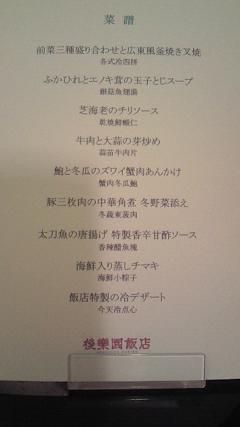 菜譜
前菜三種盛り合わせと広東風釜焼き叉焼
各式冷四拼
ふかひれとエノキ茸の玉子とじスープ
銀菇魚翅湯
芝海老のチリソース
乾焼鮮蝦仁
牛肉と大蒜の芽炒め
蒜苗牛肉片
鮑と冬瓜のズワイ蟹肉あんかけ
蟹肉冬瓜鮑
豚三枚肉の中華角煮 冬野菜添え
冬蔬東坡肉
太刀魚の唐揚げ 特製香辛甘酢ソース
香辣醋魚塊
海鮮入り蒸しチマキ
海鮮小粽子
飯店特製の冷デザート
今天冷点心
後樂園飯店